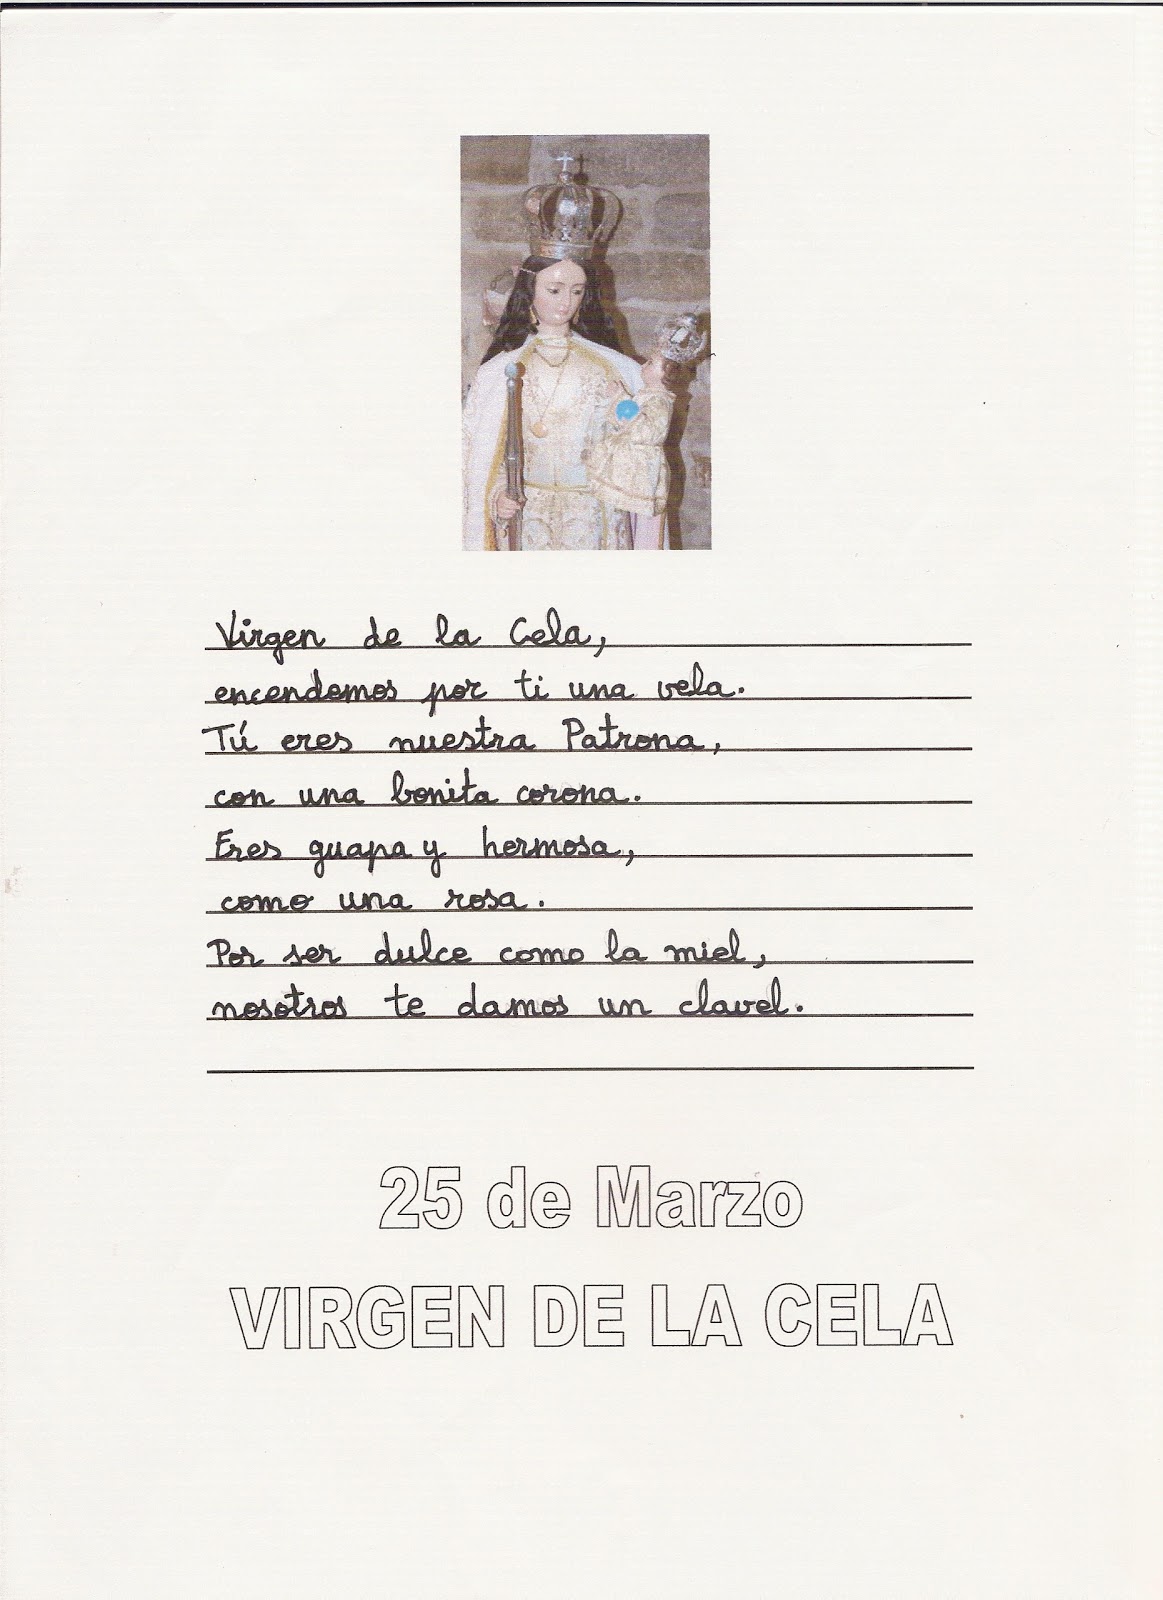 Virgen de la Cela,
encendemos por ti una vela.
Tú eres nuestra Patrona,
con una bonita corona.
Eres guapa y hermosa,
como una rosa.
Por ser dulce como la miel,
nosotros te damos un clavel.
25 de Marzo
VIRGEN DE LA CELA